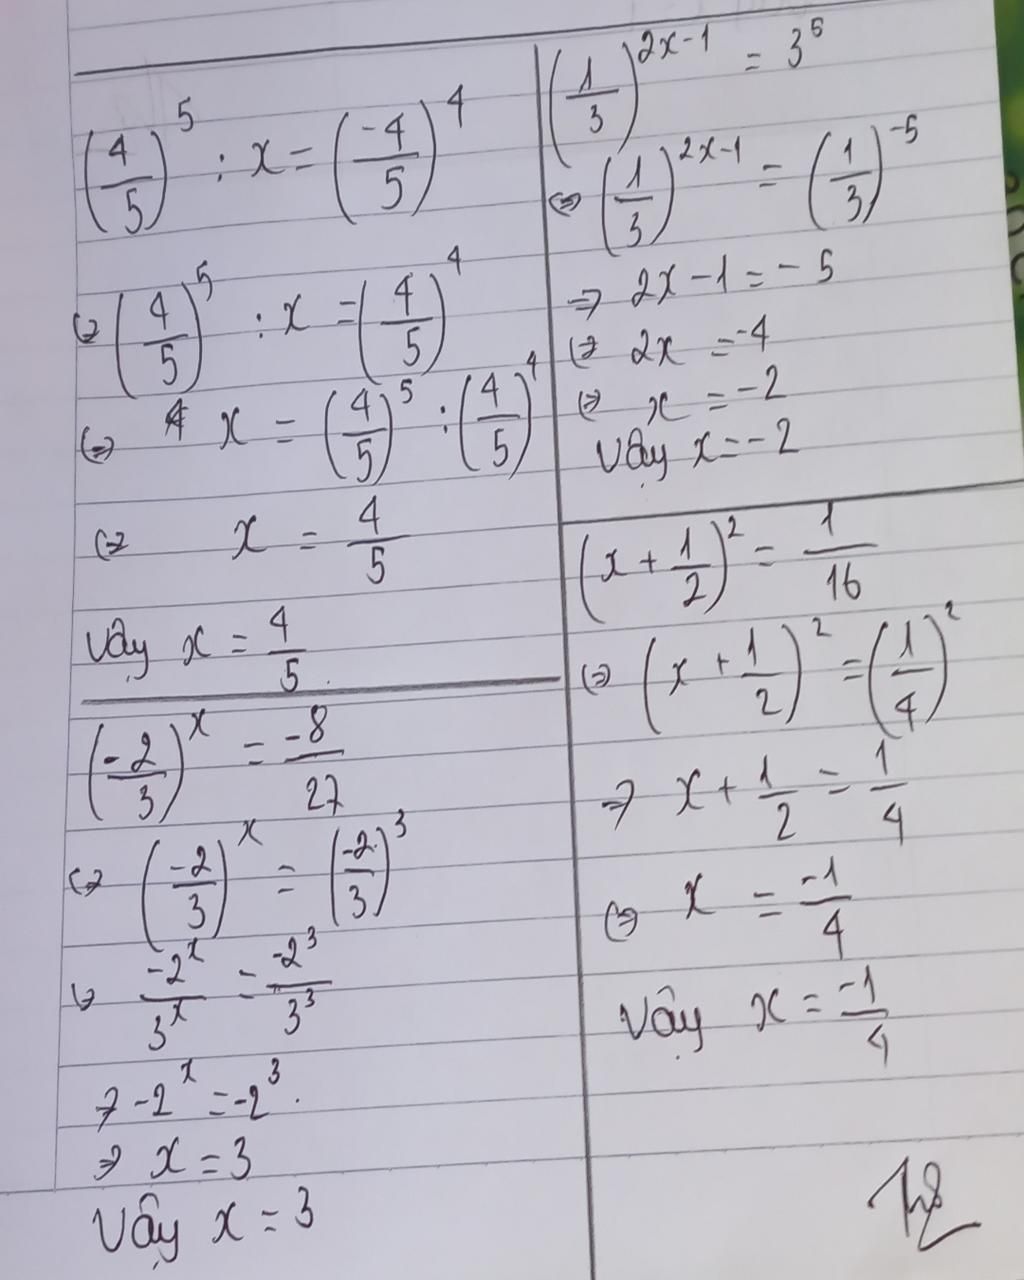 (4/5)^5 : x = (-4/5)^4
⇔ (4/5)^5 : x = (4/5)^4
⇔ x = (4/5)^5 : (4/5)^4
⇔ x = 4/5
Vậy x = 4/5.
(-2/3)^x = -8/27
⇔ (-2/3)^x = (-2/3)^3
⇔ -2^x/3^x = -2^3/3^3
⇒ -2^x = -2^3.
⇒ x = 3
Vậy x = 3
(1/3)^2x-1 = 3^5
⇔ (1/3)^2x-1 = (1/3)^-5
⇒ 2x - 1 = - 5
⇔ 2x = -4
⇔ x = -2
Vậy x = -2
(x + 1/2)^2 = 1/16
⇔ (x + 1/2)^2 = (1/4)^2
⇒ x + 1/2 = 1/4
⇔ x = -1/4
Vậy x = -1/4